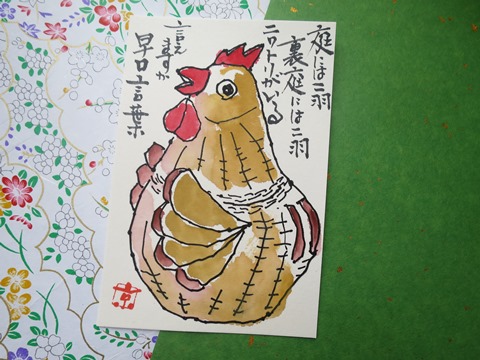 庭には二羽
裏庭には二羽
ニワトリがいる
言え
ますか
早口言葉
京